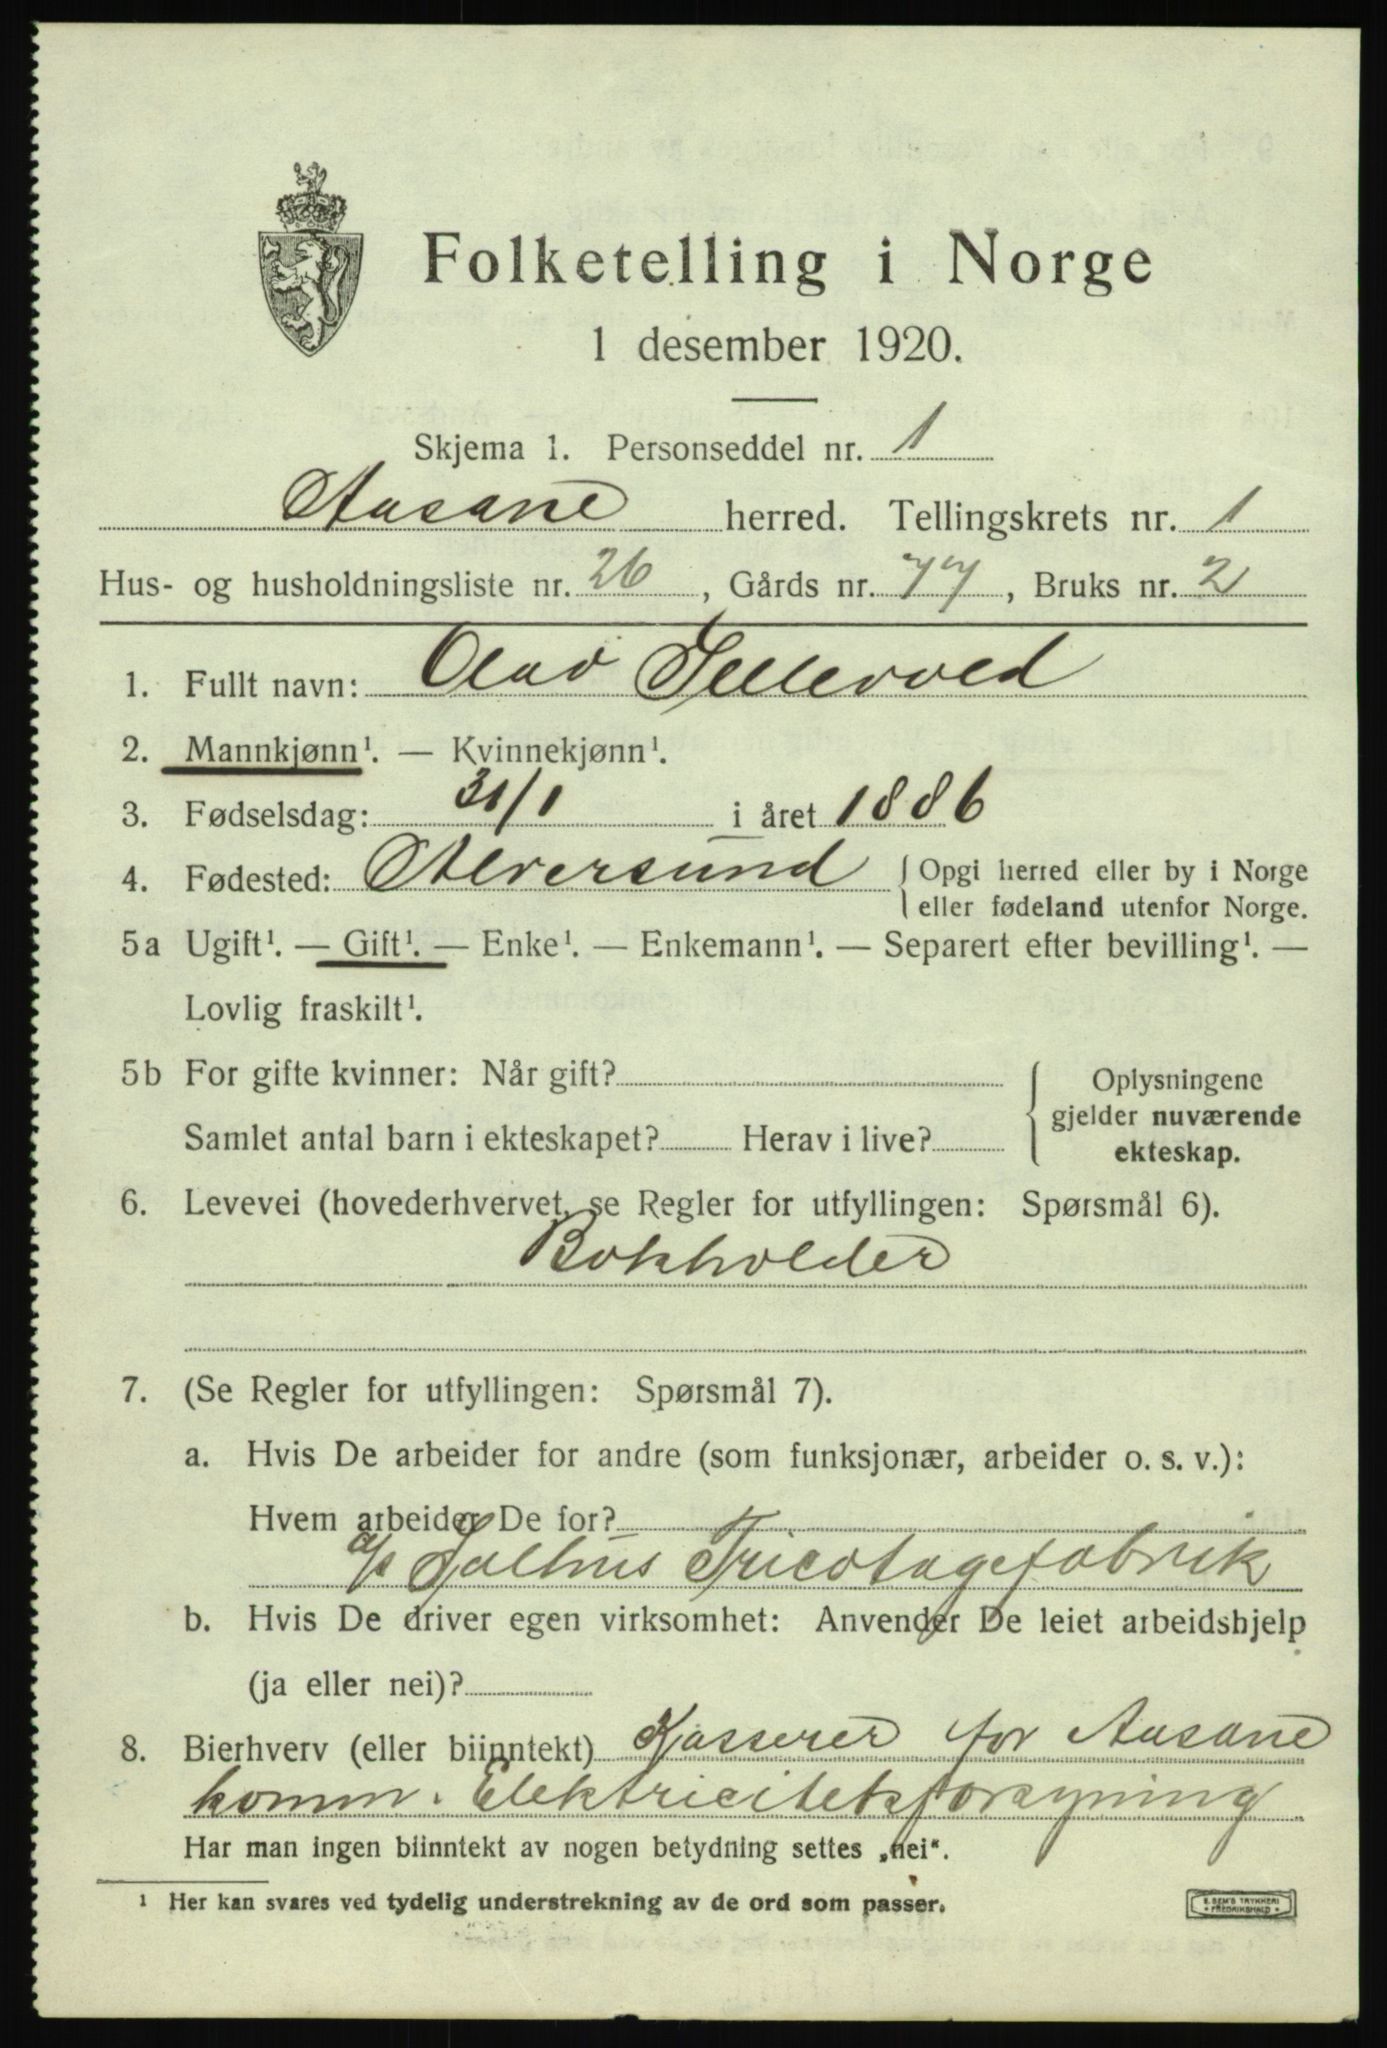 Folketelling i Norge
1 desember 1920.
Skjema 1. Personseddel nr. 1
Aasane herred. Tellingskrets nr. 1
Hus- og husholdningsliste nr. 26, Gårds nr. 77, Bruks nr. 2
1. Fullt navn: Olav Tellevold
2. Mannkjønn¹. — Kvinnekjønn¹.
3. Fødselsdag: 31/1 i året 1886
4. Fødested: Alversund { Opgi herred eller by i Norge
eller fødeland utenfor Norge.
5a Ugift¹. — Gift¹. — Enke¹. — Enkemann¹. — Separert efter bevilling¹. —
Lovlig fraskilt¹.
5b For gifte kvinner: Når gift?
Samlet antal barn i ekteskapet? Herav i live?
{ Oplysningene
gjelder nuværende
ekteskap.
6. Levevei (hovederhvervet, se Regler for utfyllingen: Spørsmål 6).
Bokholder
7. (Se Regler for utfyllingen: Spørsmål 7).
a. Hvis De arbeider for andre (som funksjonær, arbeider o. s. v.):
Hvem arbeider De for?
a/s Salhus Tricotagefabrik
b. Hvis De driver egen virksomhet: Anvender De leiet arbeidshjelp
(ja eller nei)?
8. Bierhverv (eller biinntekt) Kasserer for Aasane
komm. Elektricitetsforsyning
Har man ingen biinntekt av nogen betydning settes „nei“.
¹ Her kan svares ved tydelig understrekning av de ord som passer.
E. SEM'S TRYKKERI
• FREDRIKSHALD •